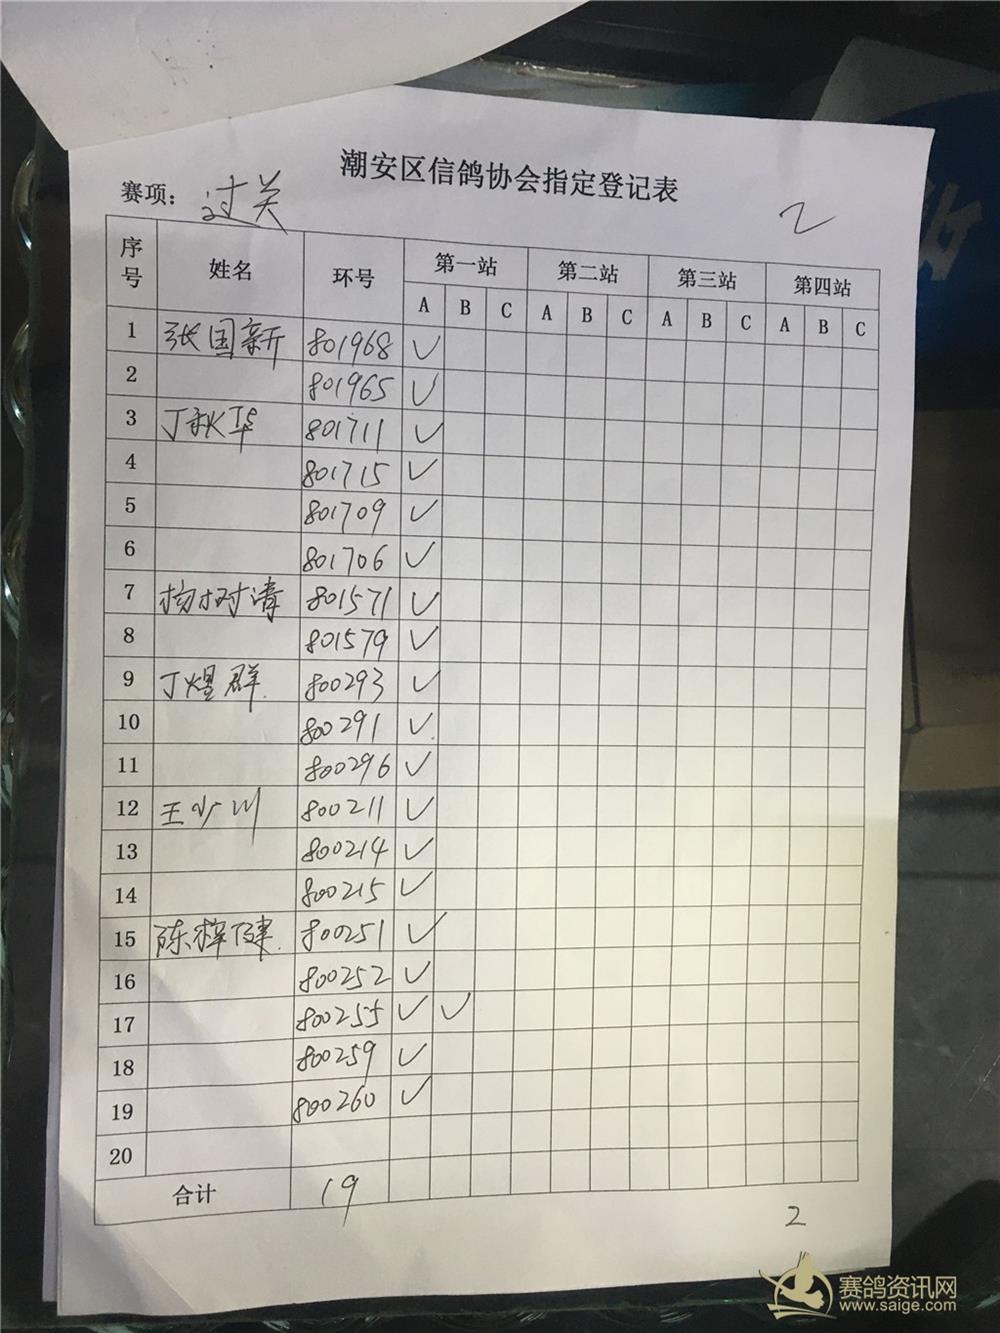 潮安区信鸽协会指定登记表
赛项：过关 2
序号 姓名 环号 第一站 第二站 第三站 第四站
A B C A B C A B C A B C
1 张国新 801968 ✓
2 801965 ✓
3 丁秋华 801711 ✓
4 801715 ✓
5 801709 ✓
6 801706 ✓
7 杨树清 801571 ✓
8 801579 ✓
9 丁煜群 800293 ✓
10 800291 ✓
11 800296 ✓
12 王少川 800211 ✓
13 800214 ✓
14 800215 ✓
15 陈梓健 800251 ✓
16 800252 ✓
17 800255 ✓ ✓
18 800259 ✓
19 800260 ✓
20
合计 19
2
赛鸽资讯网
www.saige.com